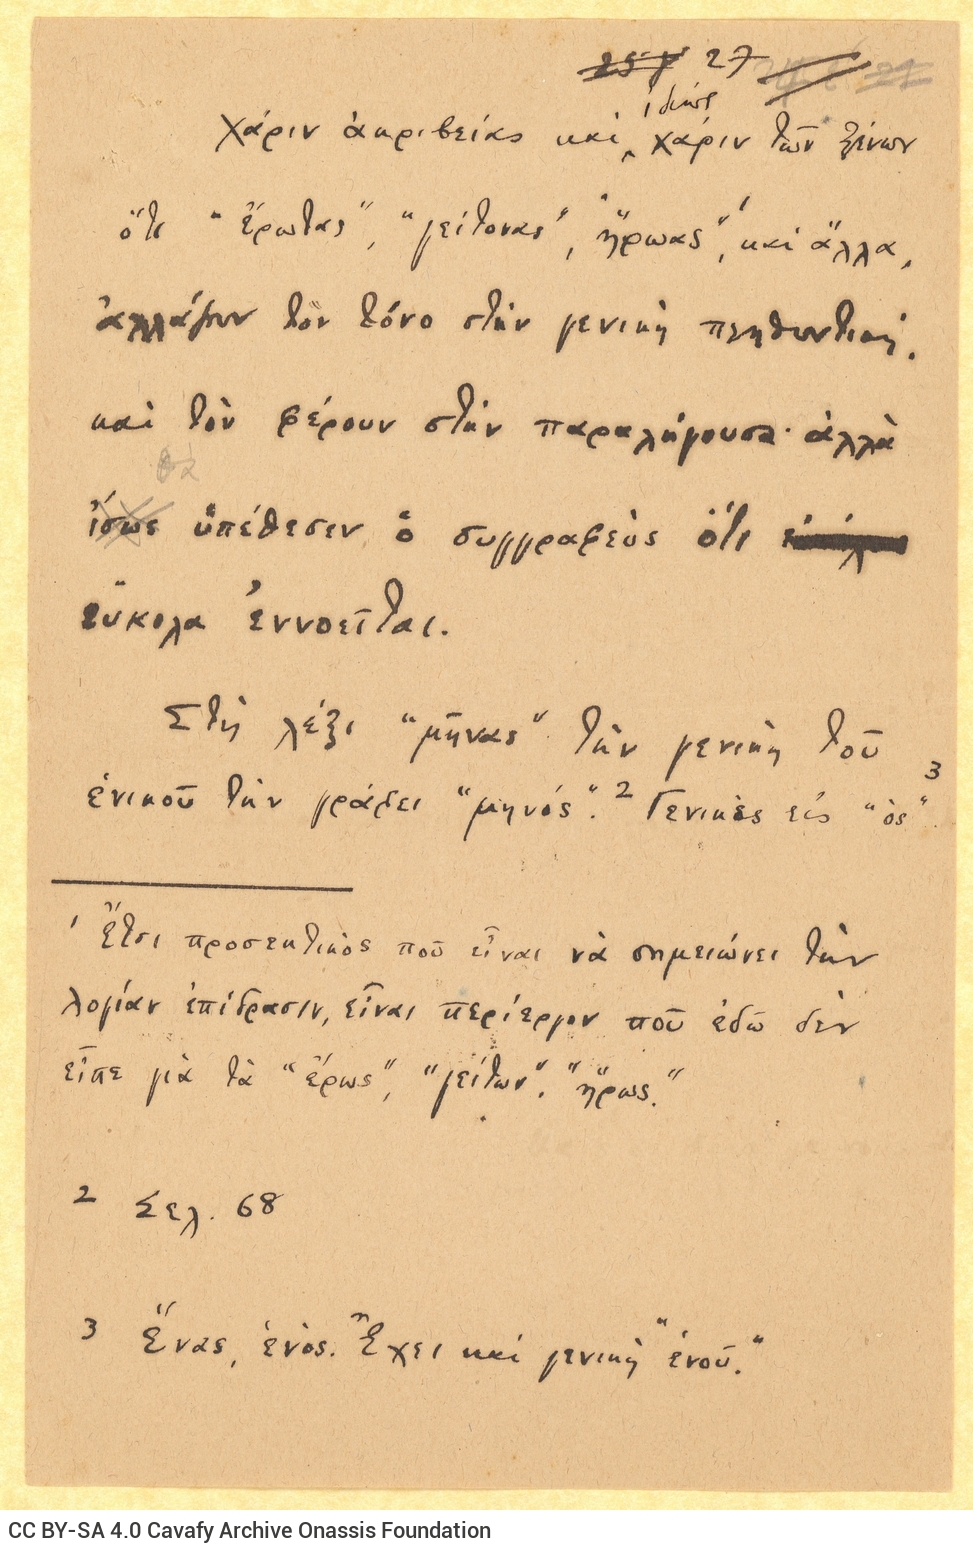 27
ἰδίως
χάριν ἀκριβείας καὶ χάριν τῶν ξένων
ὅτι "ἔρωτας", "γείτονας", "ἥρωας",¹ καὶ ἄλλα,
ἀλλάζουν τὸν τόνο στὴν γενικὴ πληθυντική,
καὶ τὸν φέρουν στὴν παραλήγουσα· ἀλλὰ
ἴσως ὑπέθεσεν ὁ συγγραφεὺς ὅτι
εὔκολα ἐννοεῖται.
Στὴ λέξι "μῆνας" τὴν γενικὴ τοῦ
ἑνικοῦ τὴν γράφει "μηνός".² Γενικὲς εἰς "ὸς"³
¹ Ἔτσι προσεκτικὸς ποῦ εἶναι νὰ σημειώνει τὴν
λογίαν ἐπίδρασιν, εἶναι περίεργον ποῦ ἐδῶ δὲν
εἶπε γιὰ τὰ "ἔρως", "γείτων", "ἥρως."
² Σελ. 68
³ Ἕνας, ἑνὸς. Ἔχει καὶ γενικὴ "ἑνοῦ."
CC BY-SA 4.0 Cavafy Archive Onassis Foundation